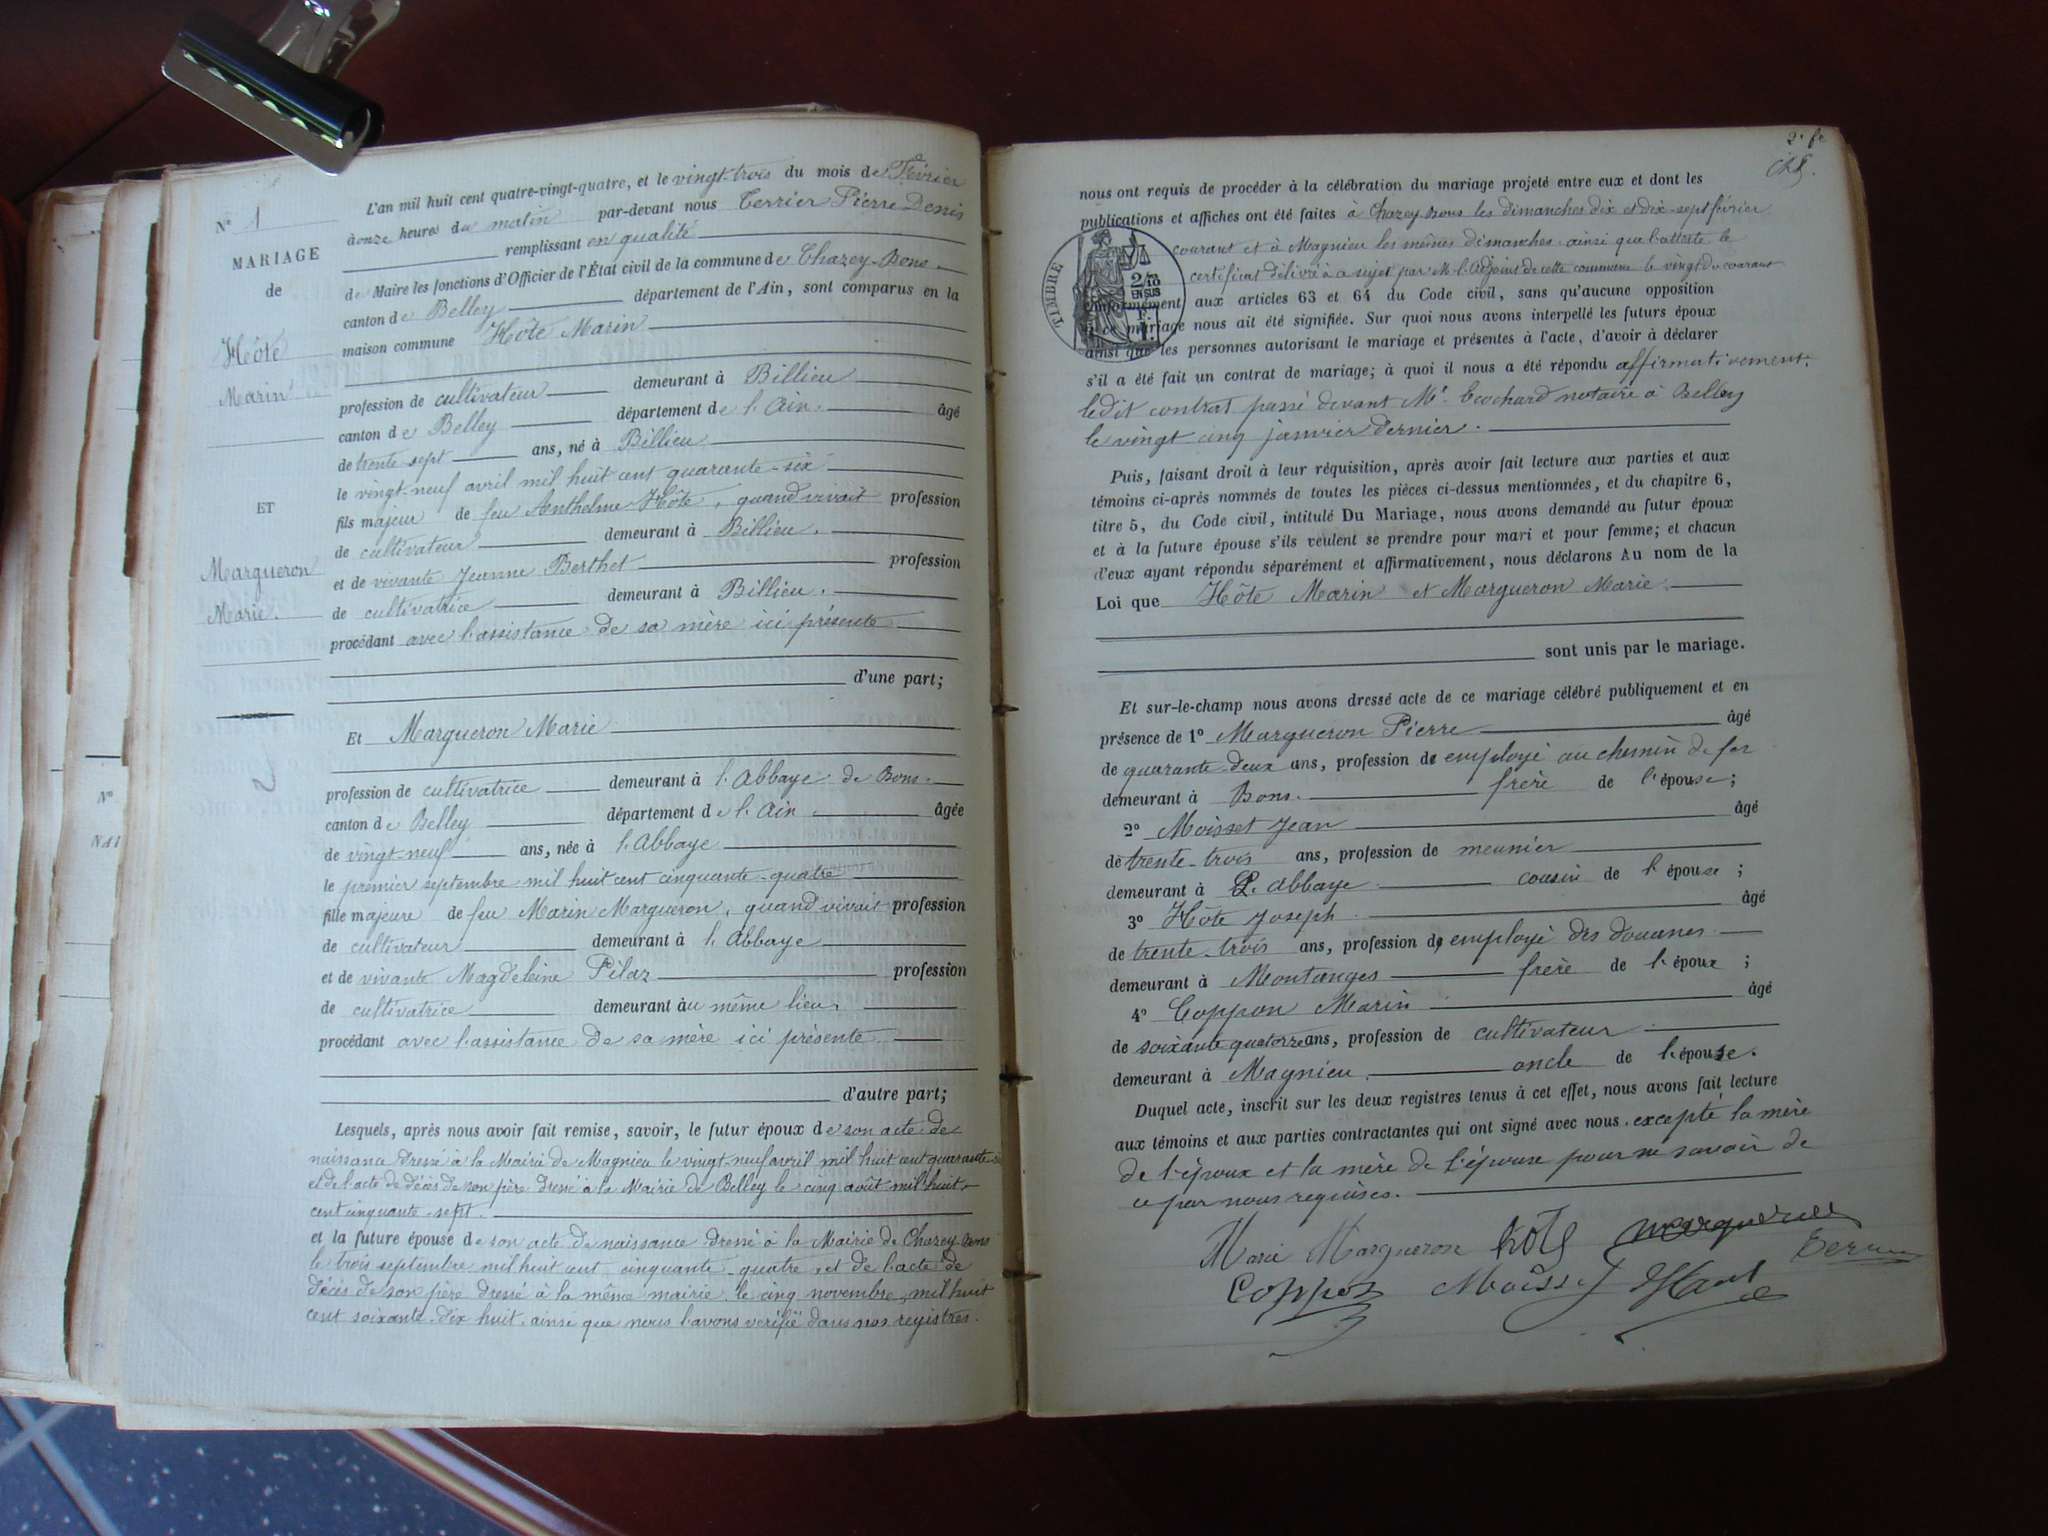 N° 1
MARIAGE
de
Hôte
Marin
ET
Margueron
Marie.
L'an mil huit cent quatre-vingt-quatre, et le vingt-trois du mois de Février
à onze heures du matin par-devant nous Terrier Pierre Denis
remplissant en qualité
de Maire les fonctions d'Officier de l'État civil de la commune de Chazey-Bons
canton de Belley département de l'Ain, sont comparus en la
maison commune Hôte Marin
profession de cultivateur demeurant à Billieu
canton de Belley département de l'Ain. âgé
de trente-sept ans, né à Billieu
le vingt-neuf avril mil huit cent quarante-six
fils majeur de feu Anthelme Hôte, quand vivait profession
de cultivateur demeurant à Billieu.
et de vivante Jeanne Berthet profession
de cultivatrice demeurant à Billieu.
procédant avec l'assistance de sa mère ici présente
d'une part;
Et Margueron Marie
profession de cultivatrice demeurant à l'Abbaye de Bons.
canton de Belley département de l'Ain âgée
de vingt-neuf ans, née à l'Abbaye
le premier septembre mil huit cent cinquante-quatre
fille majeure de feu Marin Margueron, quand vivait profession
de cultivateur demeurant à l'Abbaye
et de vivante Magdeleine Pilaz profession
de cultivatrice demeurant au même lieu,
procédant avec l'assistance de sa mère ici présente
d'autre part;
Lesquels, après nous avoir fait remise, savoir, le futur époux de son acte de
naissance dressé à la Mairie de Magnieu le vingt-neuf avril mil huit cent quarante-six
et de l'acte de décès de son père dressé à la Mairie de Belley le cinq août mil huit
cent cinquante-sept.
et la future épouse de son acte de naissance dressé à la Mairie de Chazey-Bons
le trois septembre mil huit cent cinquante-quatre, et de l'acte de
décès de son père dressé à la même mairie, le cinq novembre, mil huit
cent soixante-dix huit, ainsi que nous l'avons vérifié dans nos registres.
N°
NAI
2e fe
nous ont requis de procéder à la célébration du mariage projeté entre eux et dont les
publications et affiches ont été faites à Chazey-Bons les dimanches dix et dix-sept février
courant et à Magnieu les mêmes dimanches ainsi que l'atteste le
certificat délivré à ce sujet par M. l'Adjoint de cette commune le vingt du courant
TIMBRE
2/10
EN SUS
1 F.
conformément aux articles 63 et 64 du Code civil, sans qu'aucune opposition
à ce mariage nous ait été signifiée. Sur quoi nous avons interpellé les futurs époux
ainsi que les personnes autorisant le mariage et présentes à l'acte, d'avoir à déclarer
s'il a été fait un contrat de mariage; à quoi il nous a été répondu affirmativement,
ledit contrat passé devant Me Cochard notaire à Belley
le vingt cinq janvier dernier.
Puis, faisant droit à leur réquisition, après avoir fait lecture aux parties et aux
témoins ci-après nommés de toutes les pièces ci-dessus mentionnées, et du chapitre 6,
titre 5, du Code civil, intitulé Du Mariage, nous avons demandé au futur époux
et à la future épouse s'ils veulent se prendre pour mari et pour femme; et chacun
d'eux ayant répondu séparément et affirmativement, nous déclarons Au nom de la
Loi que Hôte Marin et Margueron Marie.
sont unis par le mariage.
Et sur-le-champ nous avons dressé acte de ce mariage célébré publiquement et en
présence de 1° Margueron Pierre âgé
de quarante-deux ans, profession de employé au chemin de fer
demeurant à Bons. frère de l'épouse;
2° Moisset Jean âgé
de trente-trois ans, profession de meunier
demeurant à L'abbaye cousin de l'épouse;
3° Hôte Joseph âgé
de trente-trois ans, profession de employé des douanes
demeurant à Montanges frère de l'époux;
4° Coppon Marin âgé
de soixante quatorze ans, profession de cultivateur
demeurant à Magnieu oncle de l'épouse.
Duquel acte, inscrit sur les deux registres tenus à cet effet, nous avons fait lecture
aux témoins et aux parties contractantes qui ont signé avec nous, excepté la mère
de l'époux et la mère de l'épouse pour ne savoir de
ce par nous requises.
Marie Margueron hote Margueron
Coppon Moisset